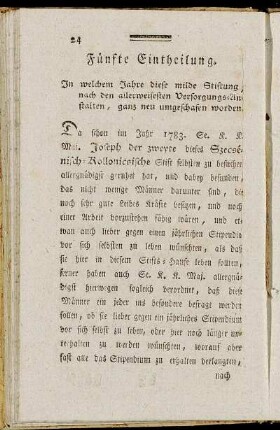 24
Fünfte Eintheilung.
In welchem Jahre diese milde Stiftung,
nach den allerweisesten Versorgungsan-
stalten, ganz neu umgeschafen worden.
Da schon im Jahr 1783. Se. K. K.
Maj. Joseph der zweyte dieses Szecsé-
nisch-Kollonicsische Stift selbsten zu besuchen
allergnädigst geruhet hat, und dabey befunden,
das nicht wenige Männer darunter sind, die
noch sehr gute Leibes Kräfte besitzen, und noch
einer Arbeit vorzustehen fähig wären, und et-
wan auch lieber gegen einen jährlichen Stipendio
vor sich selbsten zu leben wünschten, als daß
sie hier in diesem Stifts-Hause leben sollten,
ferner haben auch Se. K. K. Maj. allergnä-
digst hierwegen sogleich verordnet, daß diese
Männer ein jeder ins besondere befragt werden
sollen, ob sie lieber gegen ein jährliches Stipendium
vor sich selbst zu leben, oder hier noch länger un-
terhalten zu werden wünschten, worauf aber
fast alle das Stipendium zu erhalten verlangten,
nach